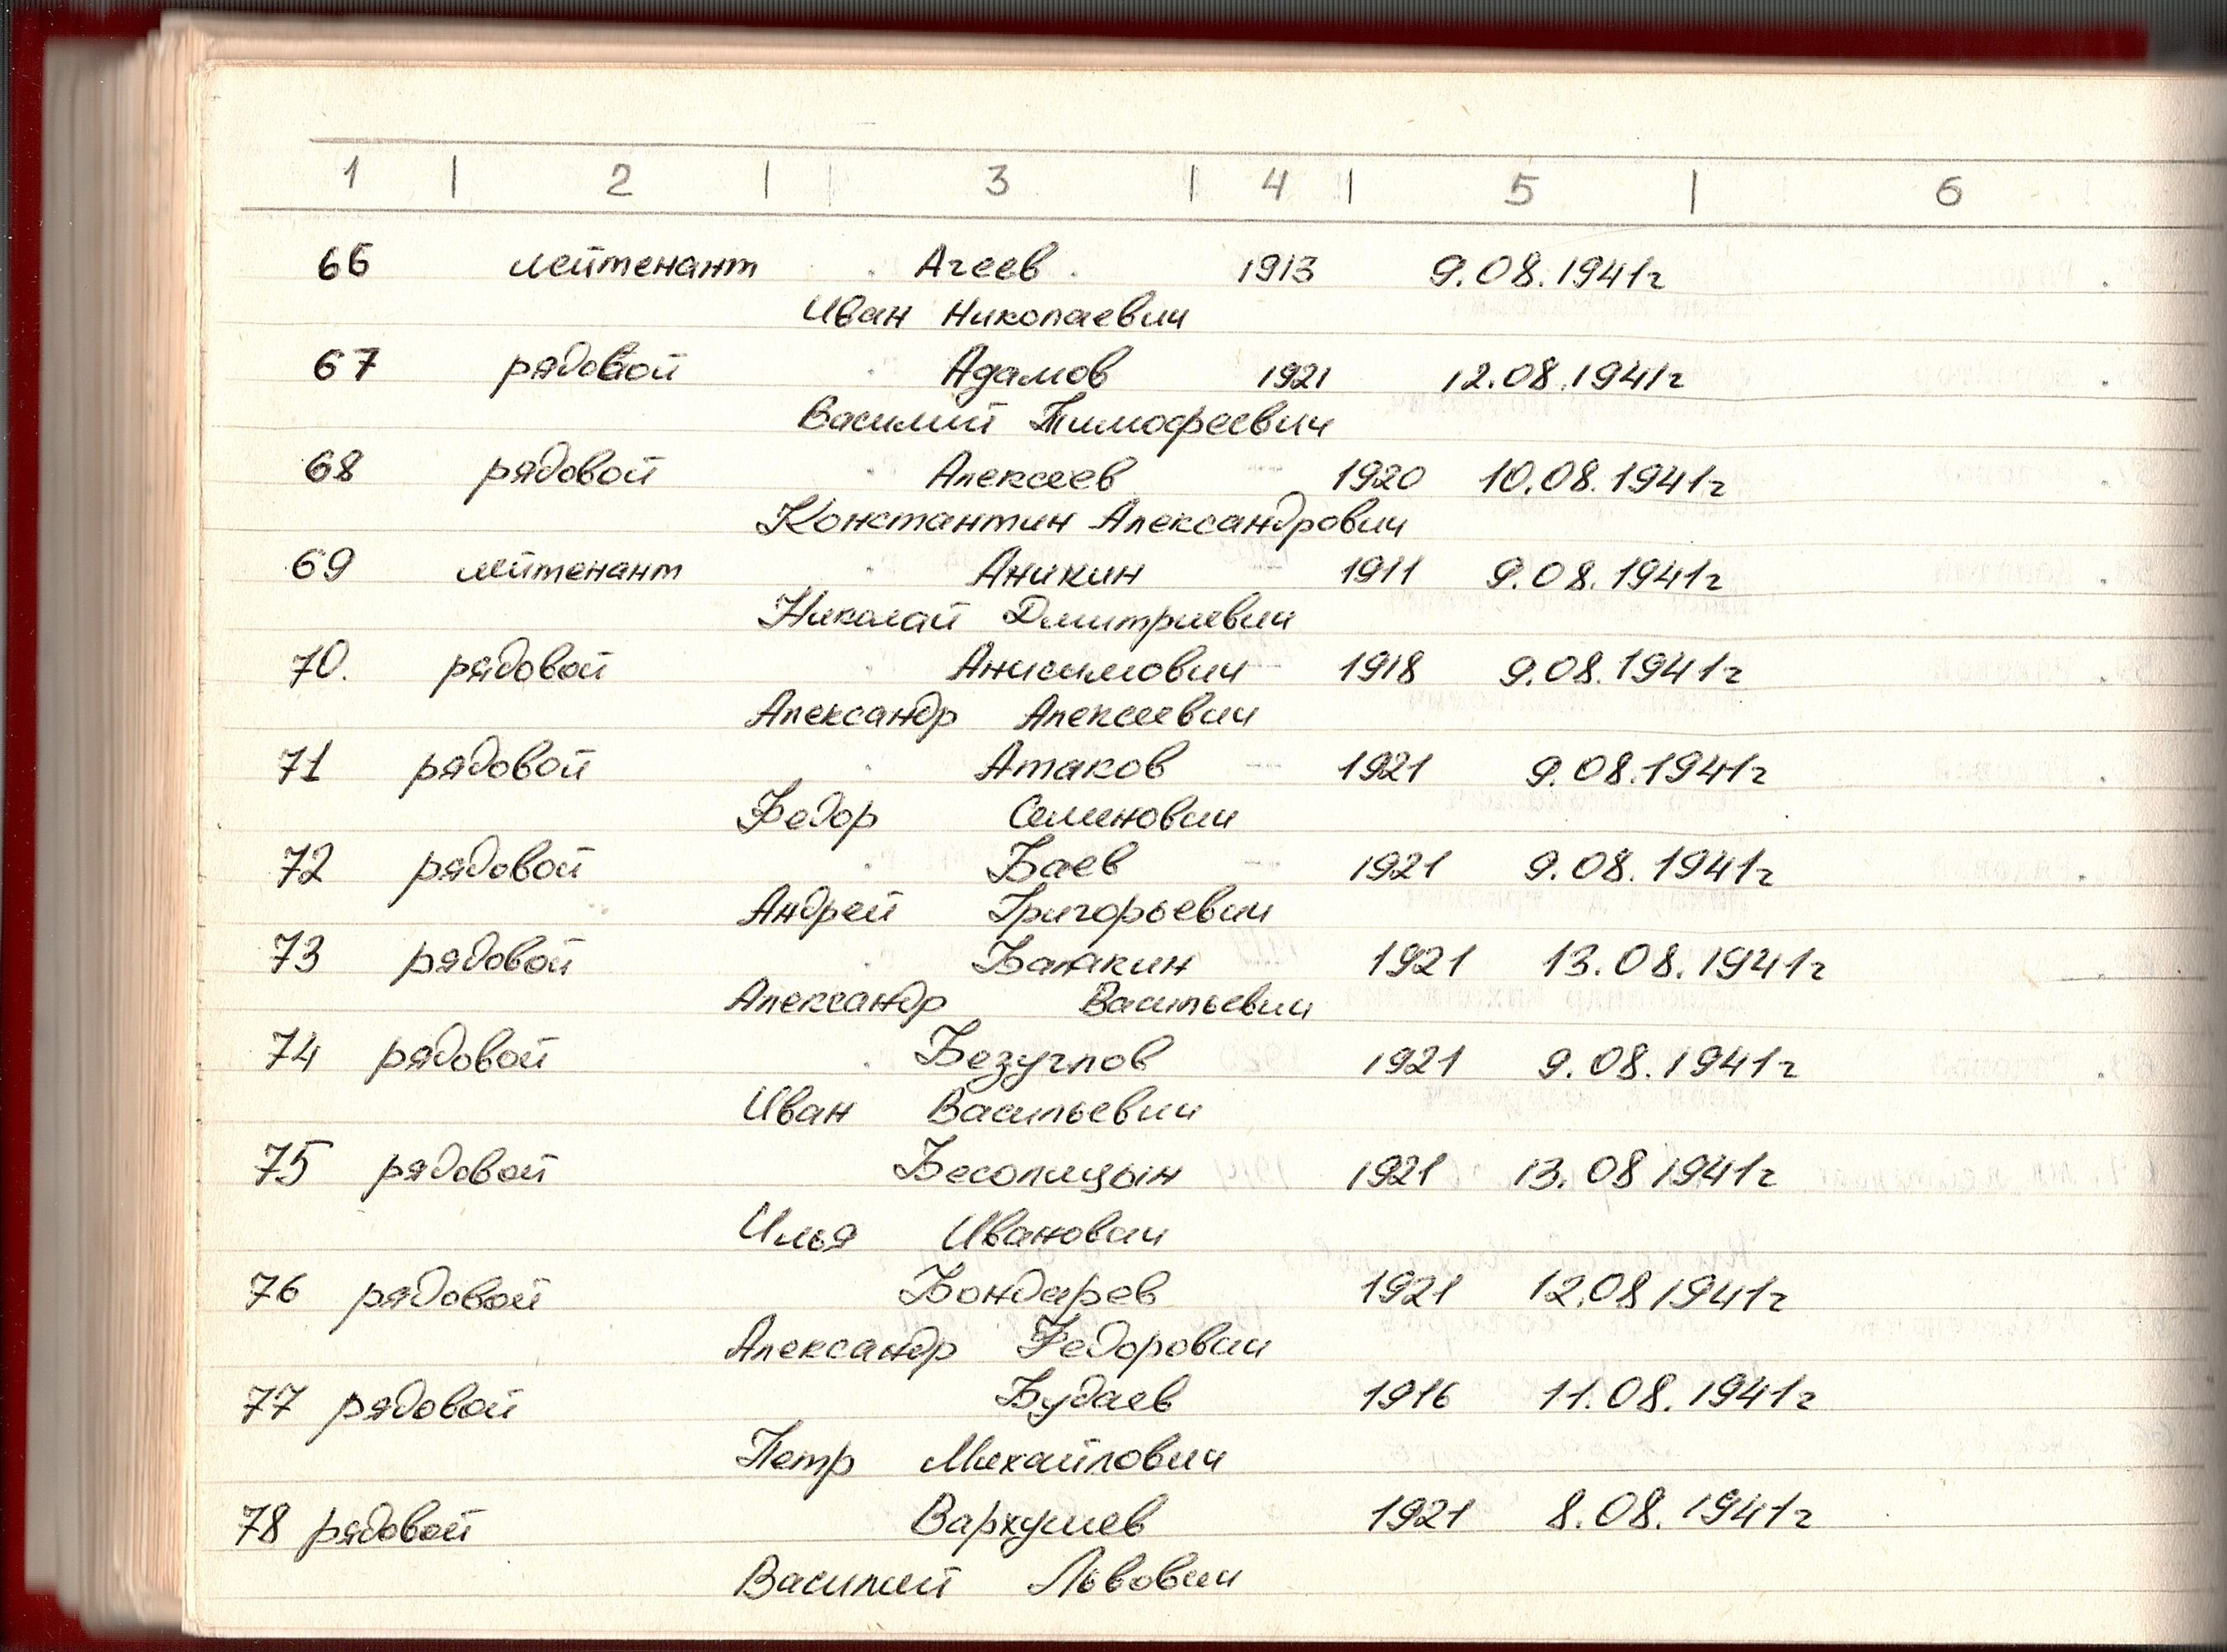 1 | 2 | 3 | 4 | 5 | 6
66 лейтенант Агеев 1913 9.08.1941г
Иван Николаевич
67 рядовой Адамов 1921 12.08.1941г
Василий Тимофеевич
68 рядовой Алексеев 1920 10.08.1941г
Константин Александрович
69 лейтенант Аникин 1911 9.08.1941г
Николай Дмитриевич
70. рядовой Анисимович 1918 9.08.1941г
Александр Алексеевич
71 рядовой Атаков 1921 9.08.1941г
Федор Семенович
72 рядовой Баев 1921 9.08.1941г
Андрей Григорьевич
73 рядовой 1921 13.08.1941г
Александр Васильевич
74 рядовой Безуглов 1921 9.08.1941г
Иван Васильевич
75 рядовой Бесолицын 1921 13.08 1941г
Илья Иванович
76 рядовой Бондарев 1921 12.08 1941г
Александр Федорович
77 рядовой Будаев 1916 11.08.1941г
Петр Михайлович
78 рядовой Вархушев 1921 8.08.1941г
Василий Львович